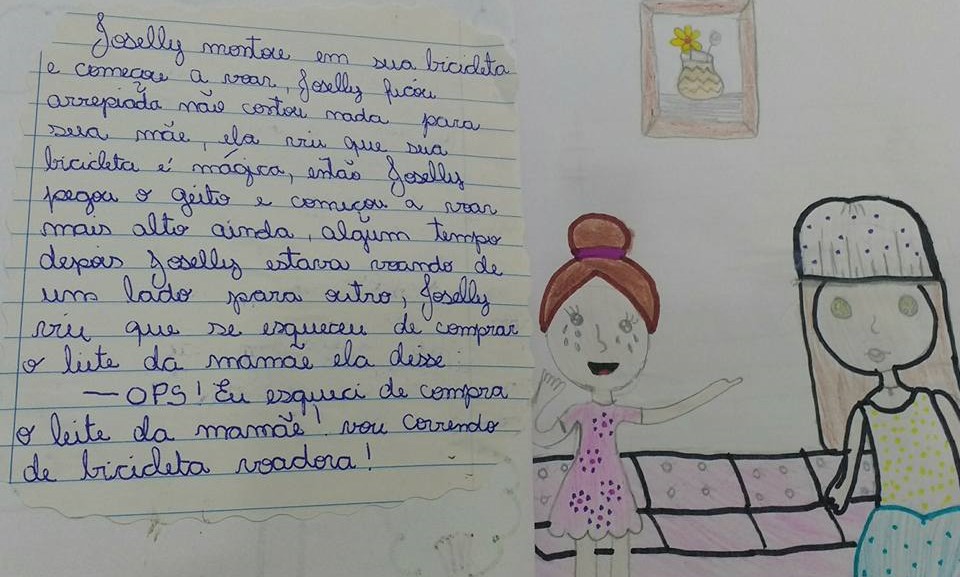 Joselly montou em sua bicicleta
e começou a voar, Joselly ficou
arrepiada não contou nada para
sua mãe, ela viu que sua
bicicleta é mágica, então Joselly
pegou o geito e começou a voar
mais alto ainda, algum tempo
depois Joselly estava voando de
um lado para outro, Joselly
viu que se esqueceu de comprar
o leite da mamãe ela disse:
— OPS! Eu esqueci de compra
o leite da mamãe! vou correndo
de bicicleta voadora!